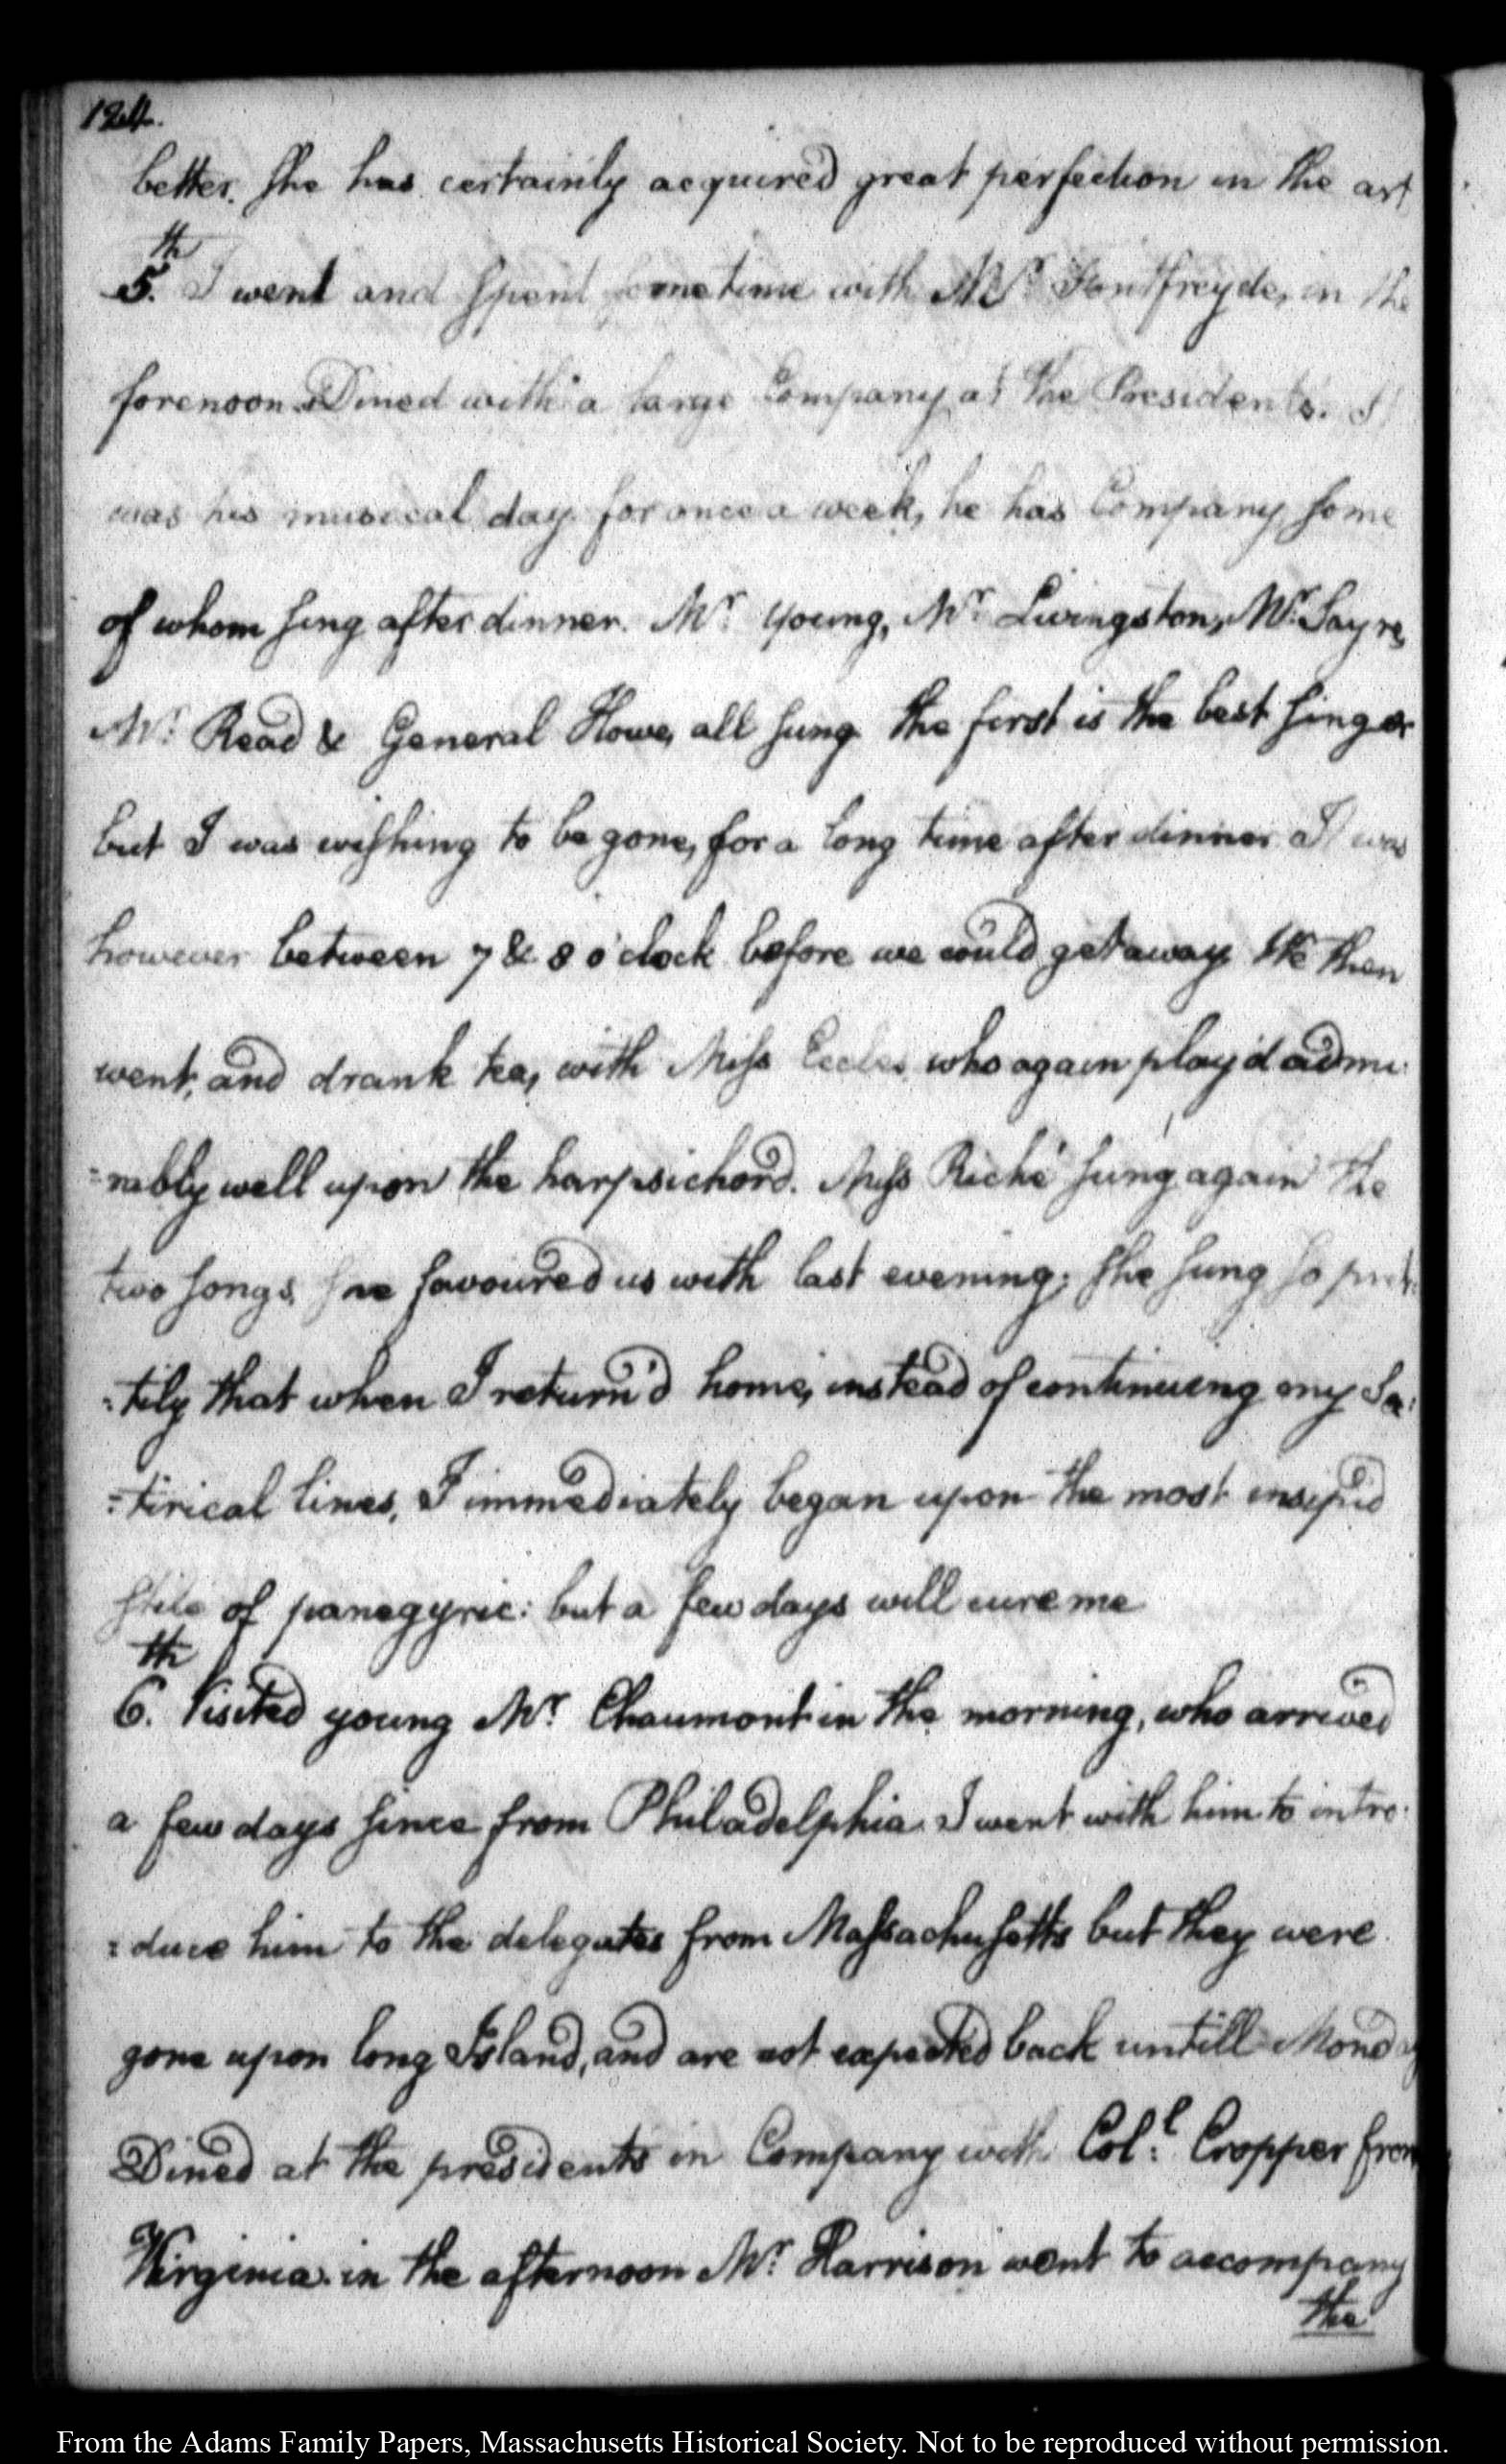 124.
better. She has certainly acquired great perfection in the art
5.th I went and spent sometime with Mr. Fontfreyde, in the
forenoon. Dined with a large Company at the Presidents. It
was his musical day. for once a week, he has Company some
of whom sing after dinner. Mr. Young, Mr. Livingston, Mr. Sayre,
Mr. Read & General Howe, all sung. the first is the best singer
but I was wishing to be gone, for a long time after dinner. It was
however between 7 & 8 o'clock before we could get away. We then
went, and drank tea, with Miss Eccles, who again play'd admi-
=rably well upon the harpsichord. Miss Riché sung again the
two songs, she favoured us with last evening; She sung so pret:
=tily that when I return'd home, instead of continuing my Sa:
=tirical lines, I immediately began upon the most insipid
stile of panegyric: but a few days will cure me
6.th Visited young Mr. Chaumont in the morning, who arrived
a few days since from Philadelphia. I went with him to intro-
=duce him to the delegates from Massachusetts but they were
gone upon long Island, and are not expected back untill Monday
Dined at the presidents in Company with Col:l Cropper from
Virginia. in the afternoon Mr. Harrison went to accompany
the
From the Adams Family Papers, Massachusetts Historical Society. Not to be reproduced without permission.